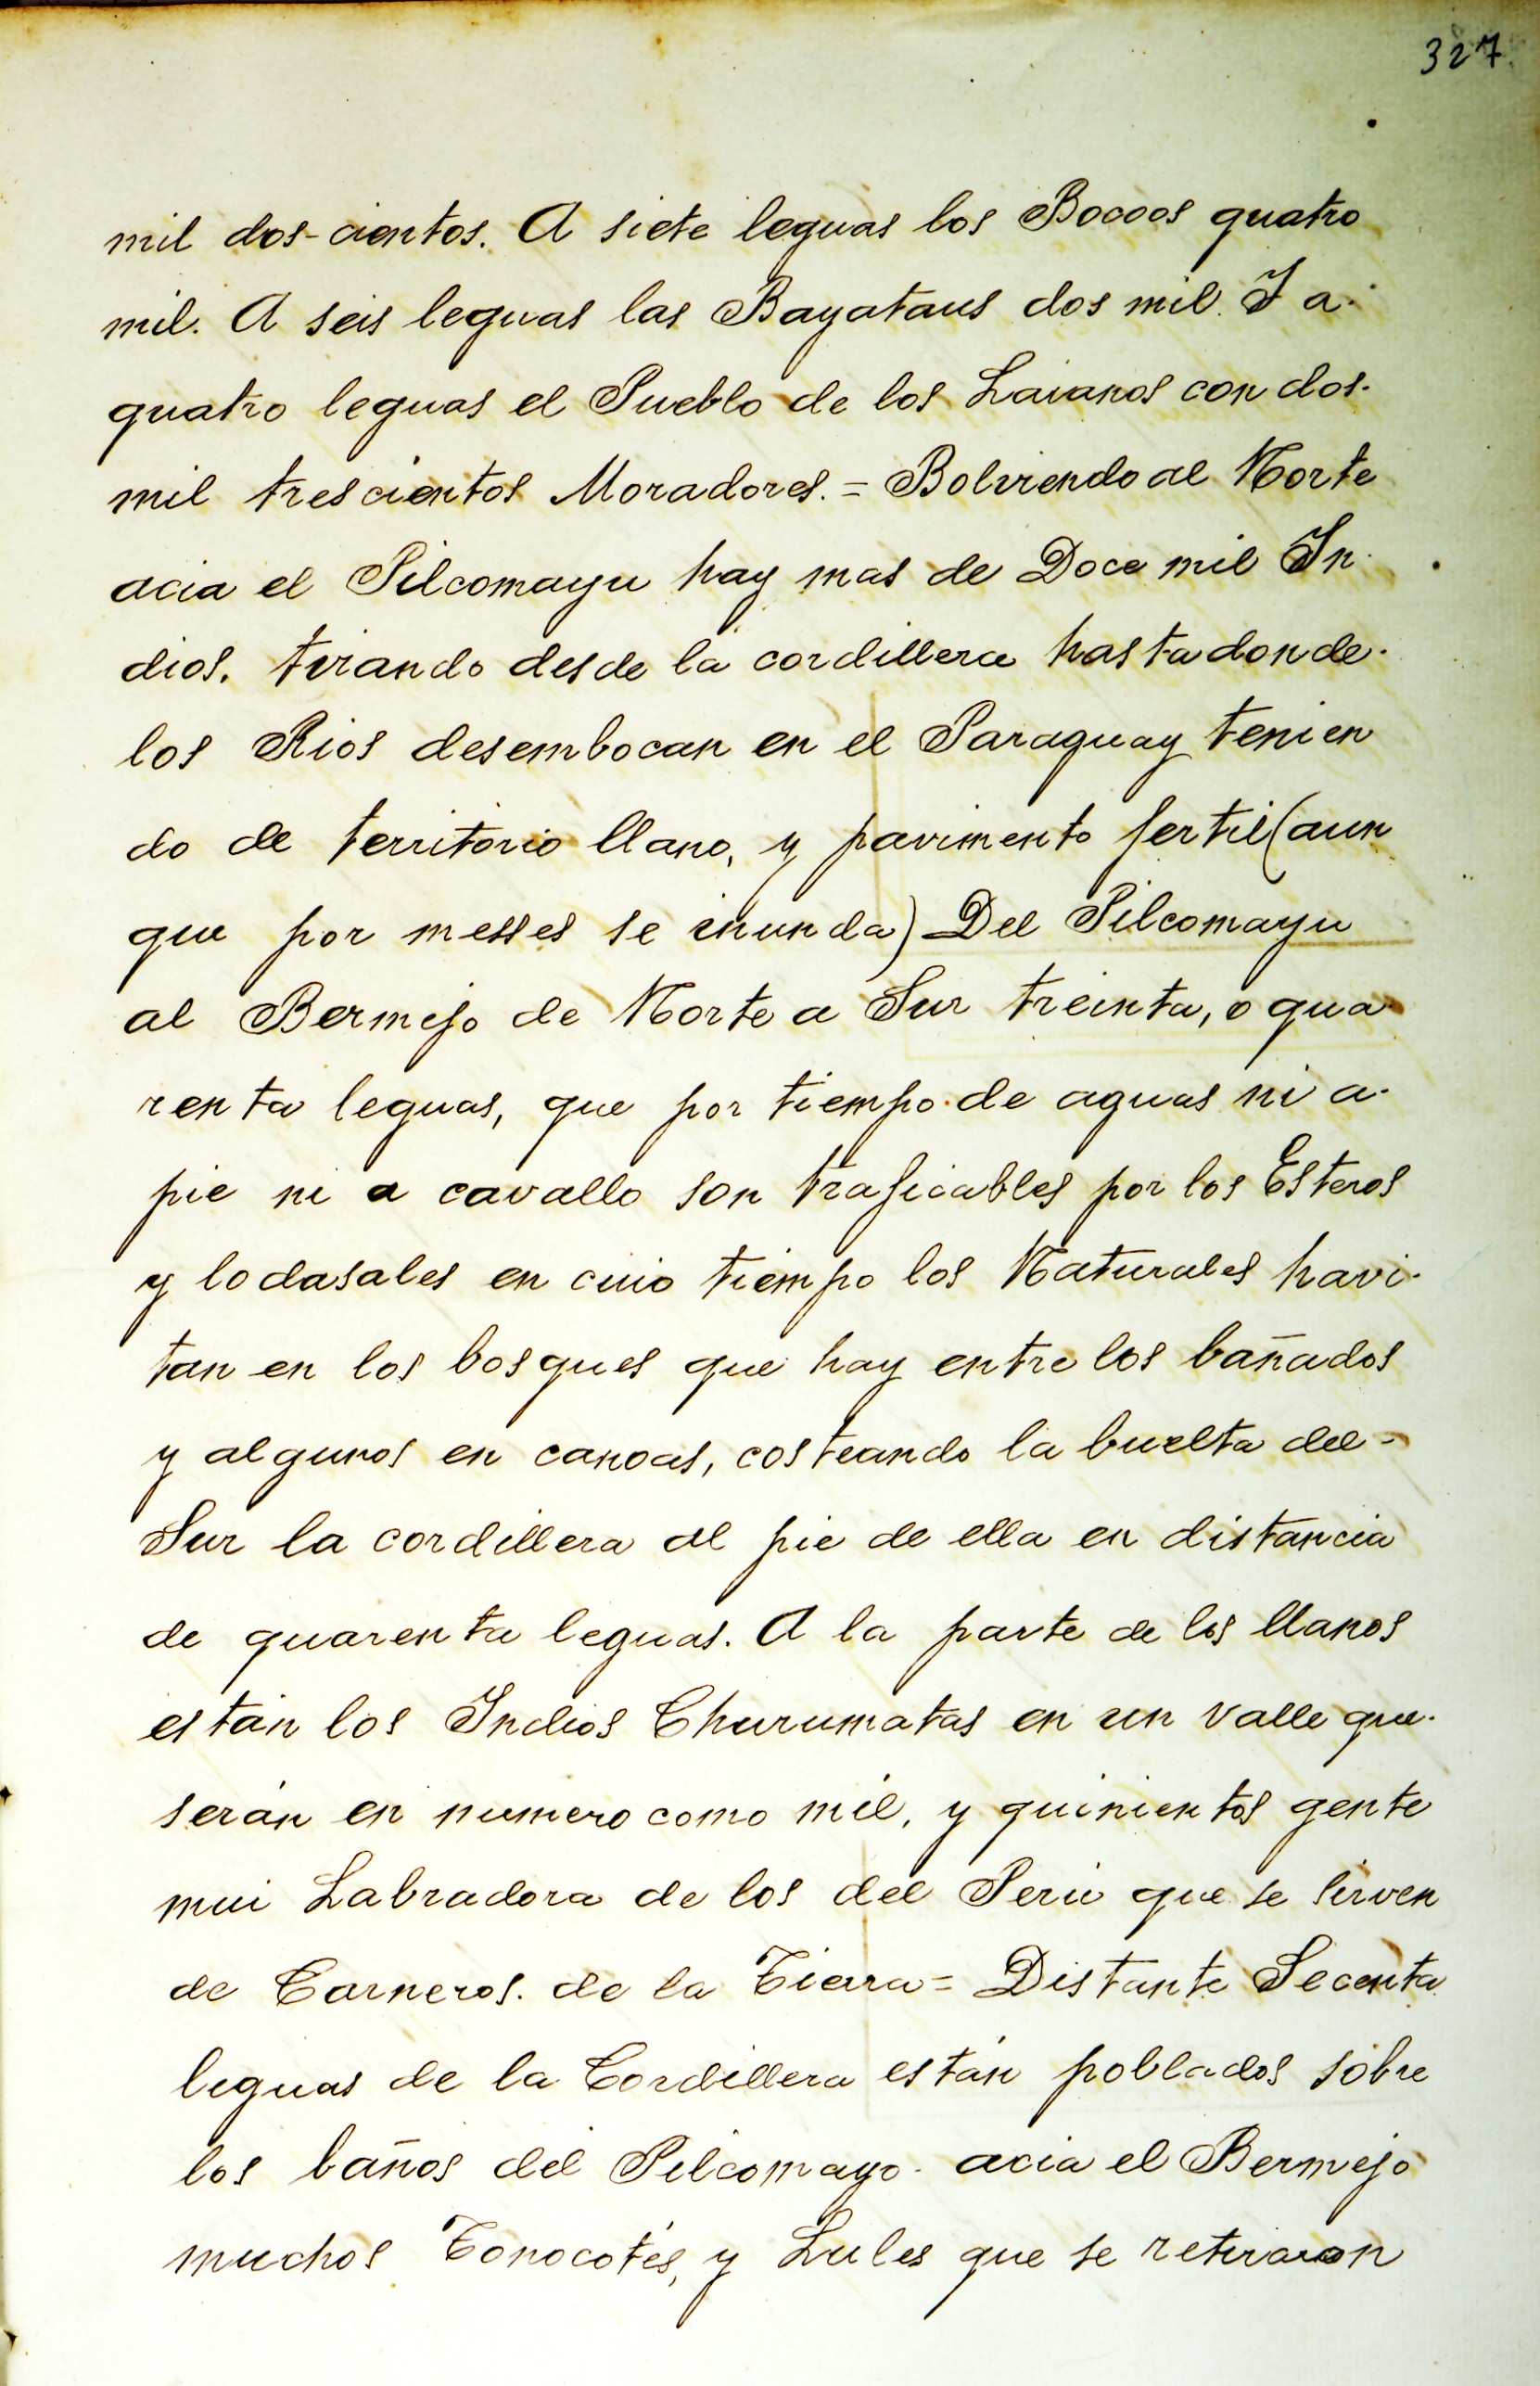 327
mil dos-cientos. A siete leguas los Bocoos quatro
mil. A seis leguas las Bayataus dos mil. I a.
quatro leguas el Pueblo de los Laianos con dos.
mil trescientos Moradores. = Bolviendo al Norte
acia el Pilcomayu hay mas de Doce mil In
dios. tirando desde la cordillera hasta donde.
los Rios desembocan en el Paraguay tenien
do de territorio llano, y pavimento fertil (aun
que por messes se inunda) Del Pilcomayu
al Bermejo de Norte a Sur treinta, o qua
renta leguas, que por tiempo de aguas ni a.
pie ni a cavallo son traficables por los Esteros
y lodasales en cuio tiempo los Naturales havi.
tan en los bosques que hay entre los bañados
y algunos en canoas, costeando la buelta del -
Sur la cordillera al pie de ella en distancia
de quarenta leguas. A la parte de los llanos
están los Indios Churumatas en un valle que.
serán en numero como mil, y quinientos gente
mui Labradora de los del Perú que se sirven
de Carneros. de la Tierra = Distante Secenta
leguas de la Cordillera están poblados sobre
los baños del Pilcomayo. acia el Bermejo
muchos Tonocotés, y Lules que se retiraron